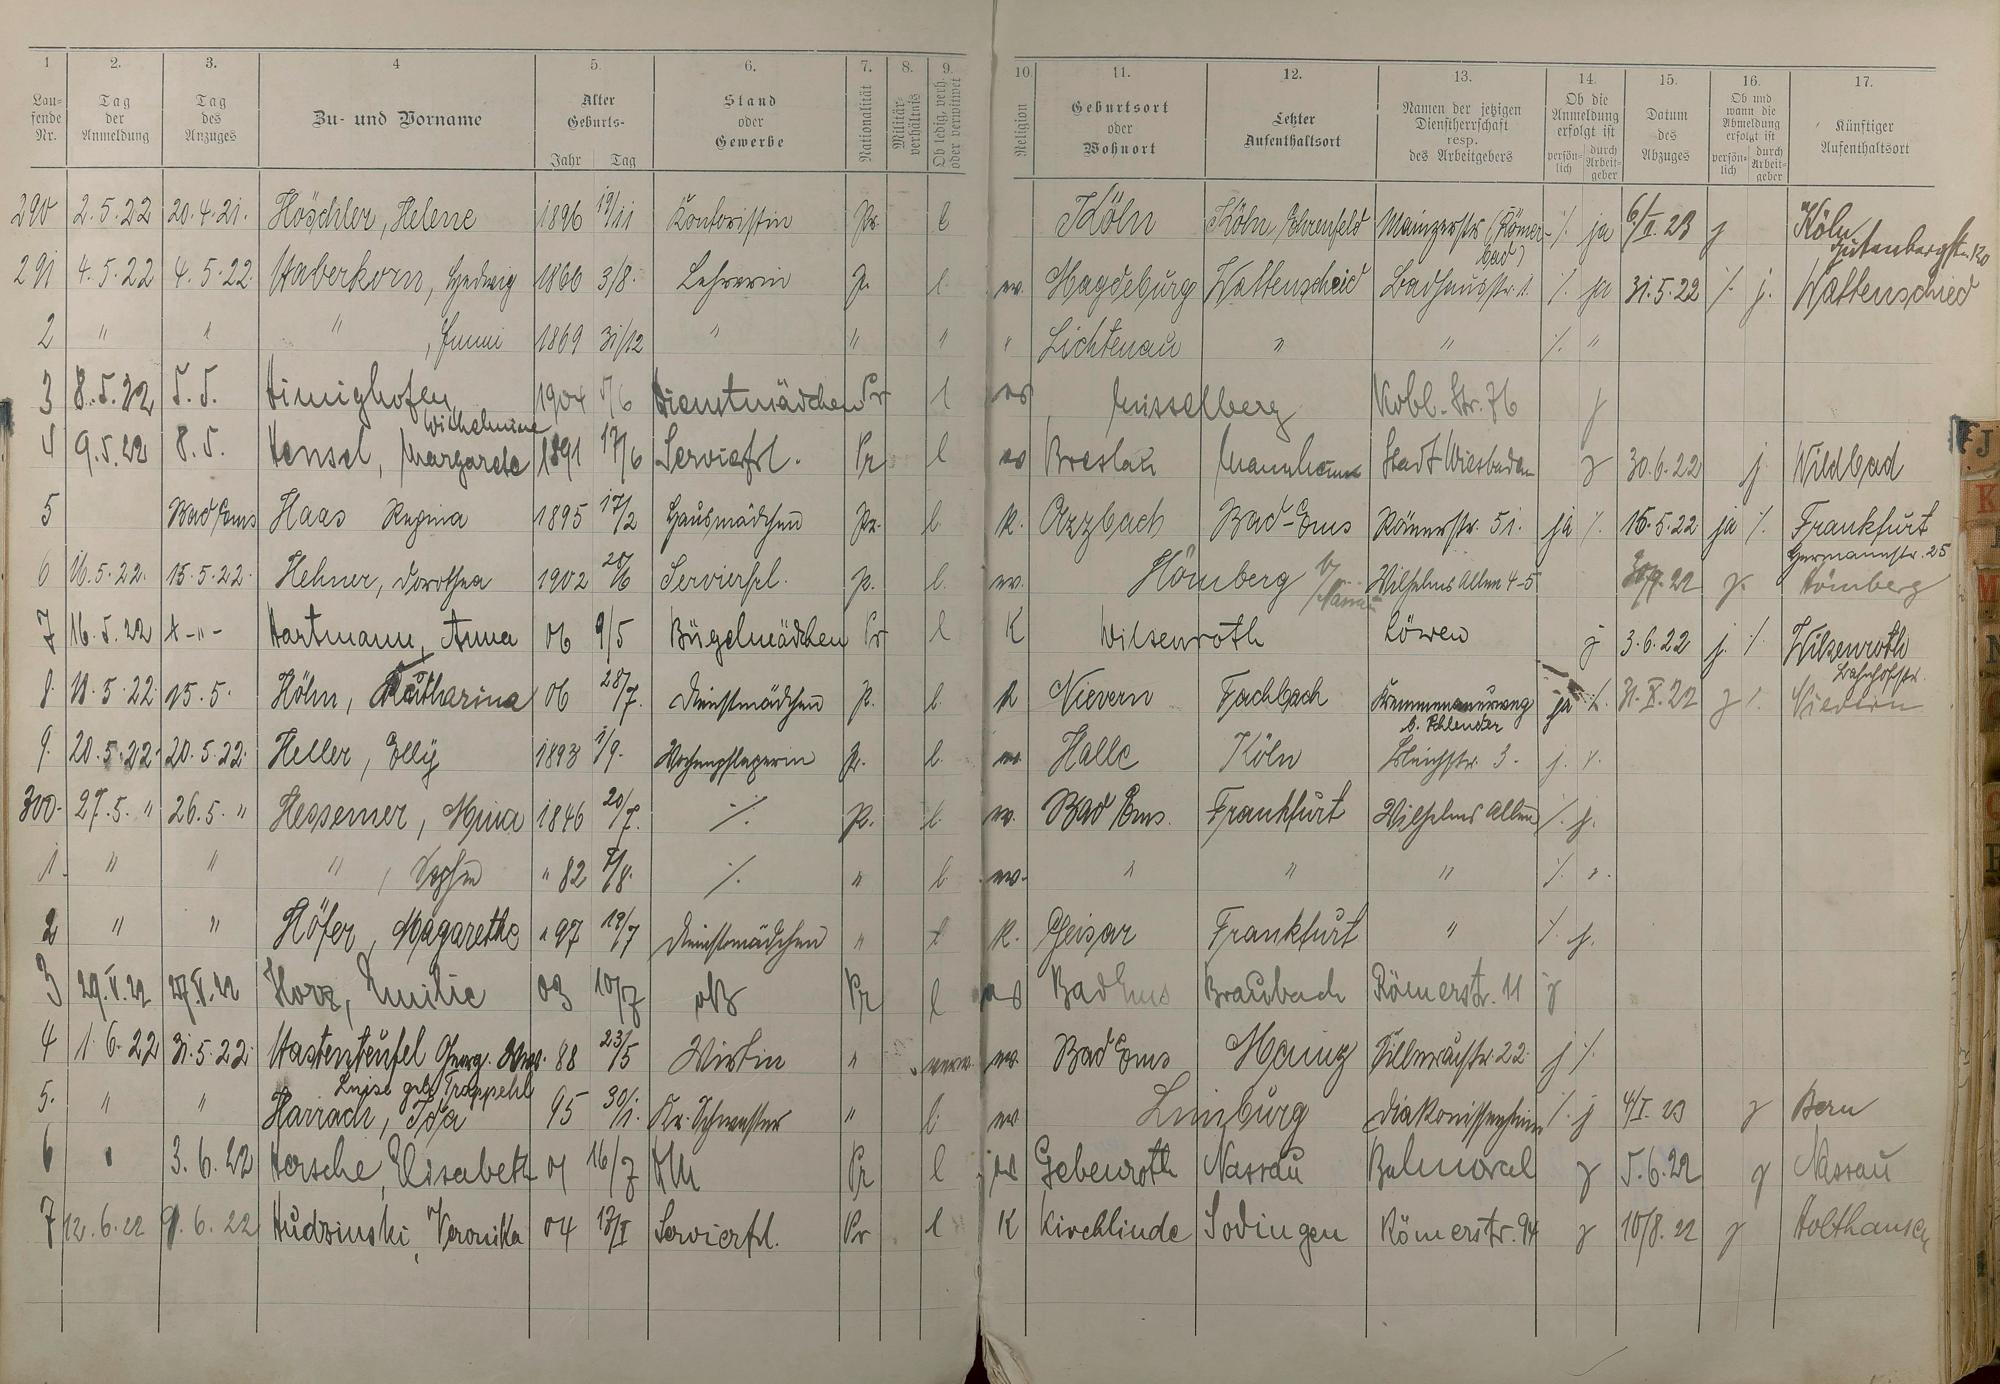 1 2. 3. 4 5. 6. 7. 8. 9. 10. 11. 12. 13. 14. 15. 16. 17.
Lau-fende Nr. Tag der Anmeldung Tag des Anzuges Zu- und Vorname Alter Geburts- Jahr Tag Stand oder Gewerbe Nationalität Militär-verhältnis Ob ledig, verh. oder verwitwet Religion Geburtsort oder Wohnort Letzter Aufenthaltsort Namen der jetzigen Dienstherrschaft resp. des Arbeitgebers Ob die Anmeldung erfolgt ist persön-lich durch Arbeit-geber Datum des Abzuges Ob und wann die Abmeldung erfolgt ist persön-lich durch Arbeit-geber Künftiger Aufenthaltsort
290 2.5.22 20.4.21. Höschler, Helene 1896 19/11 Kontoristin Pr. l Köln Köln Ehrenfeld Mainzerstr (Römer-bad) ⁒ ja 6/II.23 j Köln Gutenbergstr. 130
291 4.5.22 4.5.22. Haberkorn, Hedwig 1860 3/8. Lehrerin Pr. l. ev. Magdeburg Wattenscheid Badhausstr. 1. ⁒ ja 31.5.22 ⁒ j. Wattenschied
2 " " " , Emmi 1869 31/12 " " " " Lichtenau " " ⁒ "
3 8.5.22 5.5. Himighofen, Wilhelmine 1904 5/6 Dienstmädchen Pr l ev Misselberg Kobl. Str. 76 j
4 9.5.22 8.5. Hensel, Margarete 1891 17/6 Servierfrl. Pr l ev Breslau Mannheim Stadt Wiesbaden j 30.6.22 j Wildbad
5 Bad Ems Haas Regina 1895 17/2 Hausmädchen Pr. l. K. Arzbach Bad-Ems Römerstr. 51. ja ⁒ 15.5.22 ja ⁒ Frankfurt Germannstr. 25
6 16.5.22. 15.5.22. Hehner, Dorothea 1902 20/6 Servierfrl. Pr. l. ev. Hömberg b/Nassau Wilhelms Allee 4-5 30/9.22 j. Hömberg
7 16.5.22 +-"- Hartmann, Anna 06 9/5 Bügelmädchen Pr l K Wilsenroth Löwen j 3.6.22 j. ⁒ Wilsenroth Bahnhofstr.
8. 18.5.22. 15.5. Höhn, Katharina 06 28/7. Dienstmädchen Pr. l. K Nievern Fachbach Kemmenauerweg b. Schlender ja ⁒ 31.X.22 j ⁒ Nievern
9. 20.5.22. 20.5.22. Heller, Elly 1893 1/9. Wochenpflegerin Pr. l. ev. Halle Köln Bleichstr. 3. j. ⁒
300. 27.5. " 26.5. " Hessemer, Mina 1846 20/7. ⁒ Pr. l. ev. Bad Ems. Frankfurt Wilhelms Allee ⁒ j.
1. " " " , Sophie " 82 7/8. ⁒ " l. ev. " " " ⁒ ".
2 " " Höfer, Magarethe " 97 19/7 Dienstmädchen " l K. Geisar Frankfurt " ⁒ j.
3 29.V.22 27.V.22 Horz, Emilie 03 10/7 oB Pr l ev Bad Ems Braubach Römerstr. 11 j
4 1.6.22 31.5.22. Hastenteufel Georg. Wwe. Luise geb. Trappehl 88 23/5 Wirtin " verw. ev. Bad Ems Mainz 22. j ⁒
5. " " Harrach, Ida 95 30/1. Kr. Schwester " l. ev. Limburg Diakonissenheim ⁒ j 4/I.23 j Bern
6 " 3.6.22 Hersche, Elisabeth 01 16/7 Pr l ev Gebenroth Nassau Balmoral j 5.6.22 j Nassau
7 12.6.22 9.6.22 Hudzinski, Veronika 04 17/I Servierfrl. Pr l K Kirchlinde Sodingen Römerstr. 94 j 10/8.22 j Holthausen
J
K
M
N